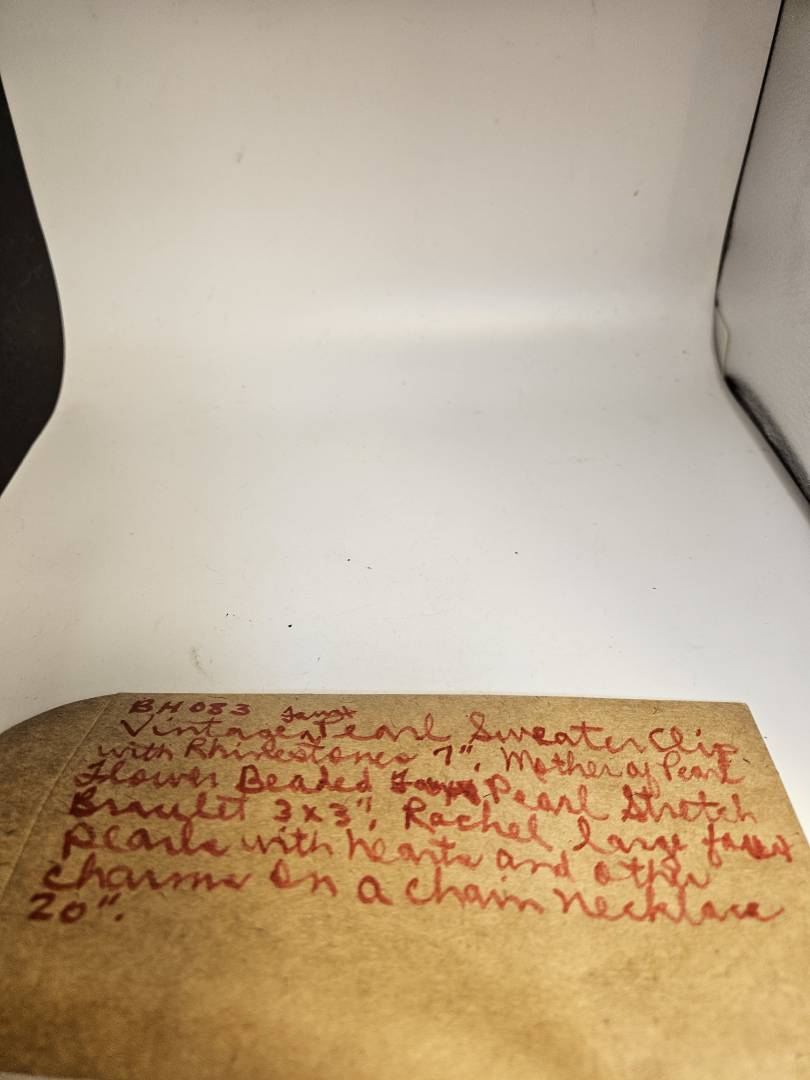 BH 083 faux
Vintage Pearl Sweater Clip
with Rhinestones 7", Mother of Pearl
Flower Beaded Pearl Stretch
Bracelet 3x3", Rachel large faux
pearls with hearts and other
charms on a chain necklace
20".